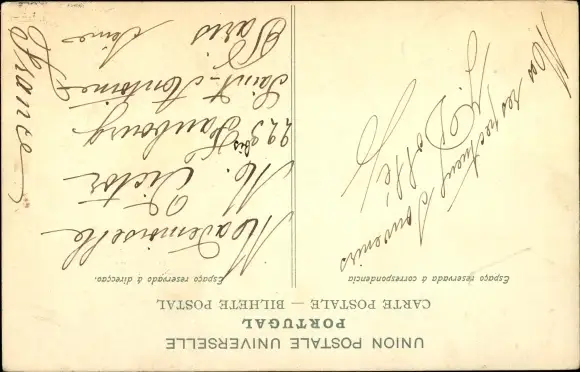 UNION POSTALE UNIVERSELLE
PORTUGAL
CARTE POSTALE — BILHETE POSTAL
Espaço reservado á correspondencia
Espaço reservado á direcção.
souvenirs
Mademoiselle
M. Victor
229 bis Faubourg
Saint-Antoine
Paris
Seine
France